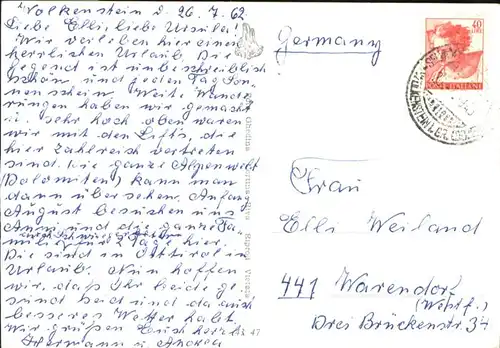 Wolkenstein d. 26.7.62
Liebe Elli, liebe Ursula!
Wir verleben hier einen
herrlichen Urlaub. Die
Gegend ist unbeschreiblich
schön und jeden Tag Son-
nenschein. Weite Wande-
rungen haben wir gemacht
u. sehr hoch oben waren
wir mit den Lifts, die
hier zahlreich vertreten
sind. Die ganze Alpenwelt
(Dolomiten) kann man
dann übersehen. Anfang
August besuchen uns
Anni und die ganze Fa-
milie 2 Tage hier.
Die sind in Osttirol in
Urlaub. Nun hoffen
wir, daß Ihr beide ge-
sund seid und da auch
besseres Wetter habt.
Wir grüßen Euch herzl.
Hermann u. Andrea
Germany
40
LIRE
POSTE ITALIANE
Frau
Elli Weiland
441 Warendorf
(Westf.)
Drei Brückenstr. 34